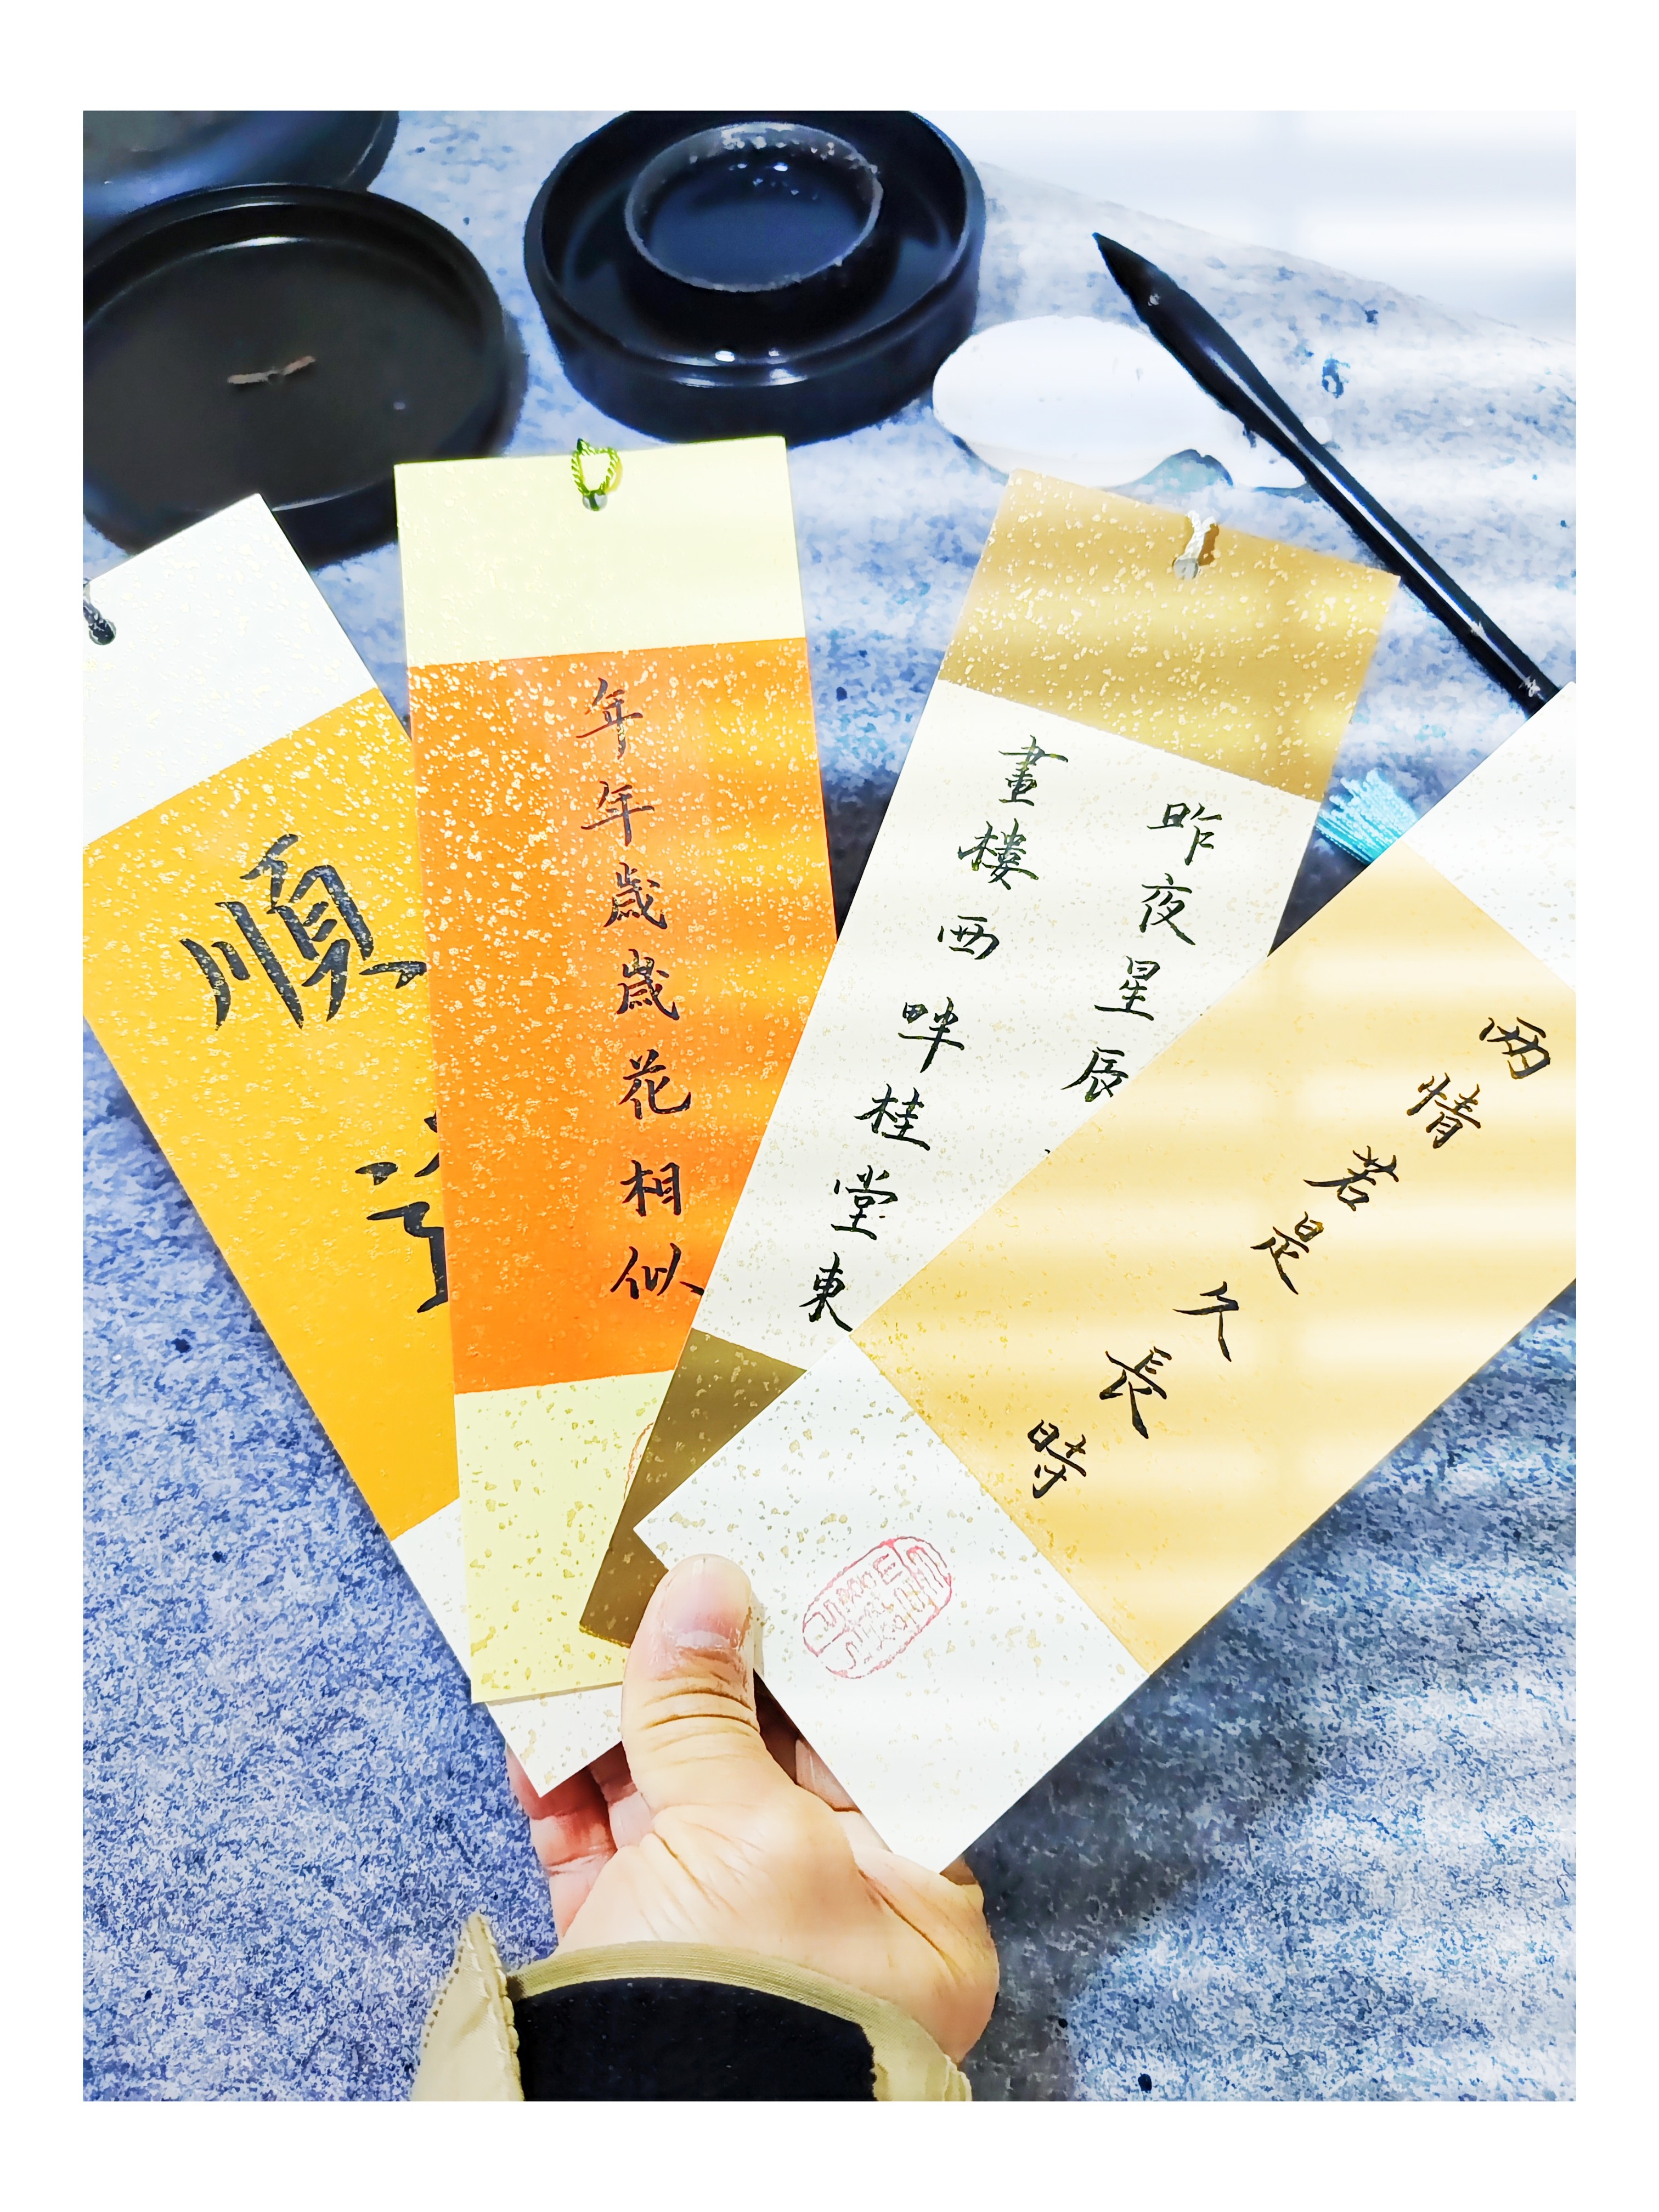 順
年年歲歲花相似
昨夜星辰
畫樓西畔桂堂東
兩情若是久長時